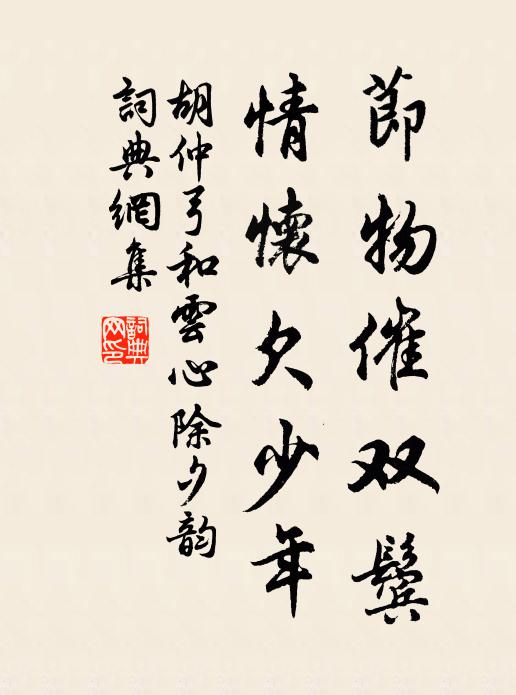 節物催双鬢
情懷欠少年
胡仲弓和雲心除夕韵
詞典網集
詞典网印